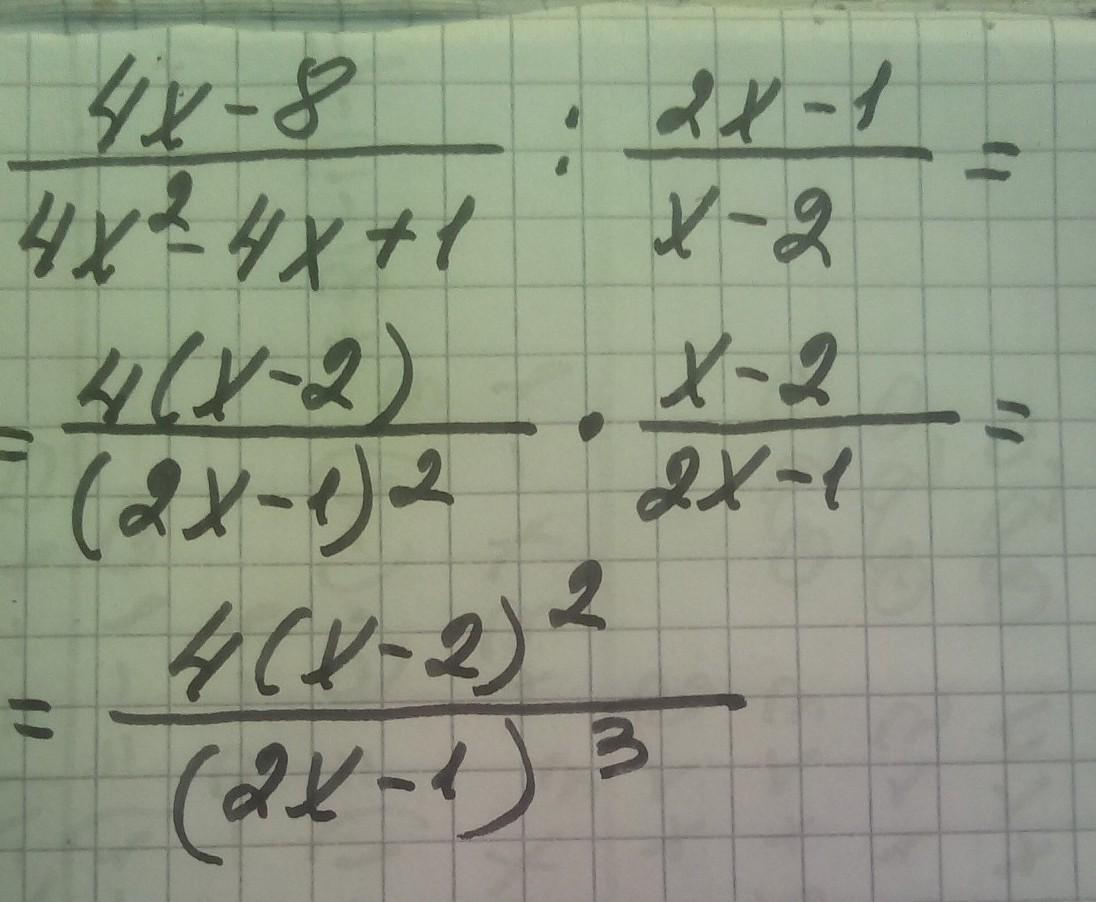 \frac{4x-8}{4x^2-4x+1} : \frac{2x-1}{x-2} =
= \frac{4(x-2)}{(2x-1)^2} \cdot \frac{x-2}{2x-1} =
= \frac{4(x-2)^2}{(2x-1)^3}